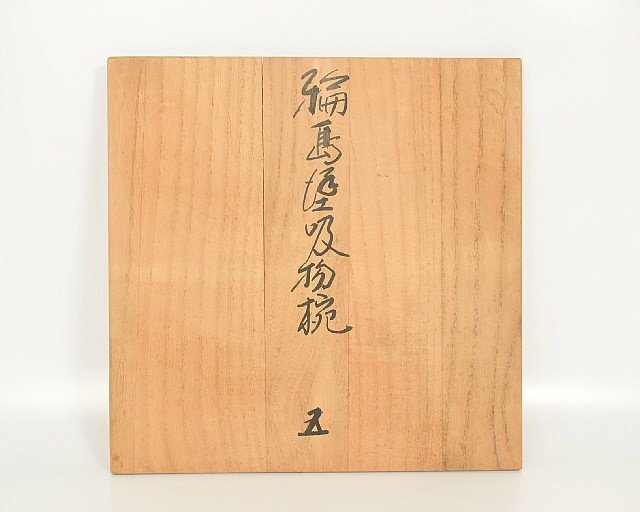 輪島塗吸物椀
五